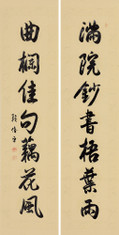 滿院鈔書梧葉雨
曲欄佳句藕花風